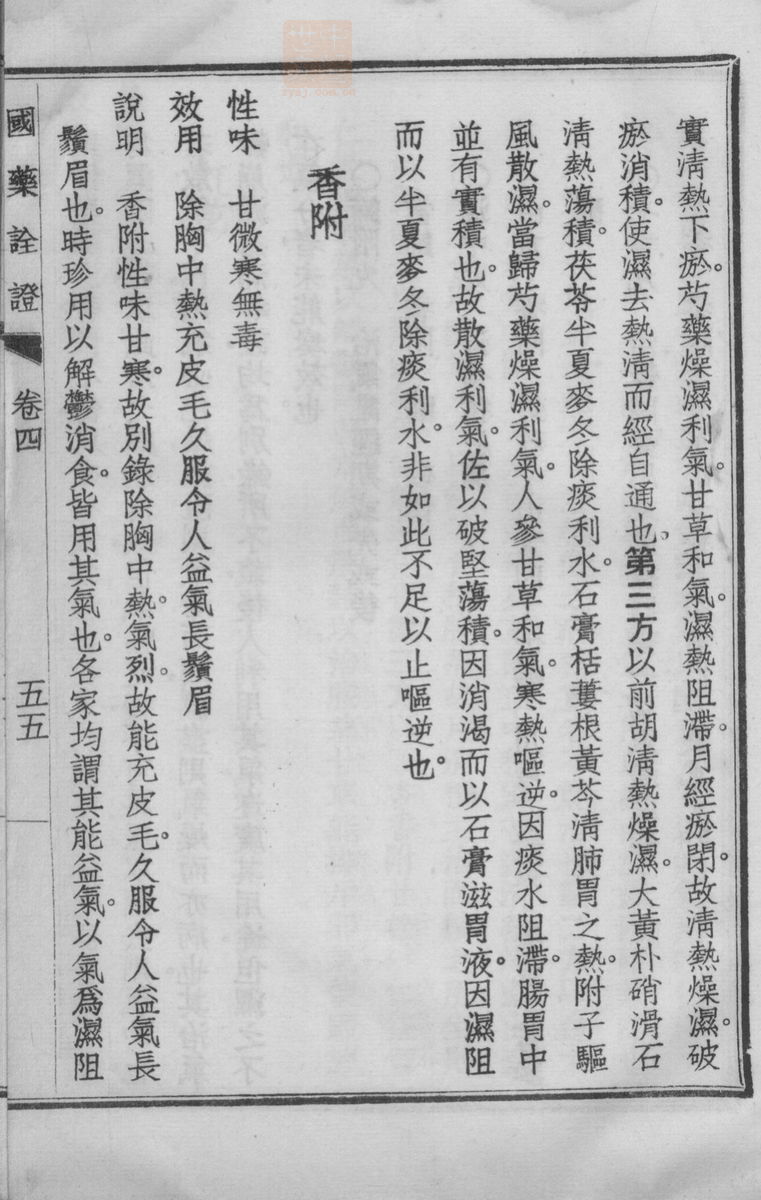 實清熱下瘀。芍藥燥濕利氣。甘草和氣。濕熱阻滯。月經瘀閉。故清熱燥濕。破
瘀消積。使濕去熱清而經自通也、第三方以前胡清熱燥濕。大黃朴硝滑石
清熱蕩積。茯苓半夏麥冬除痰利水。石膏栝蔞根黃芩清肺胃之熱。附子驅
風散濕。當歸芍藥燥濕利氣。人參甘草和氣。寒熱嘔逆。因痰水阻滯。腸胃中
並有實積也。故散濕利氣。佐以破堅蕩積。因消渴而以石膏滋胃液。因濕阻
而以半夏麥冬除痰利水。非如此不足以止嘔逆也。
香附
性味　甘微寒無毒
效用　除胸中熱充皮毛久服令人益氣長鬚眉
說明　香附性味甘寒。故別錄除胸中熱。氣烈。故能充皮毛。久服令人益氣長
鬚眉也。時珍用以解鬱消食。皆用其氣也。各家均謂其能益氣。以氣爲濕阻
國藥詮證　卷四　五五